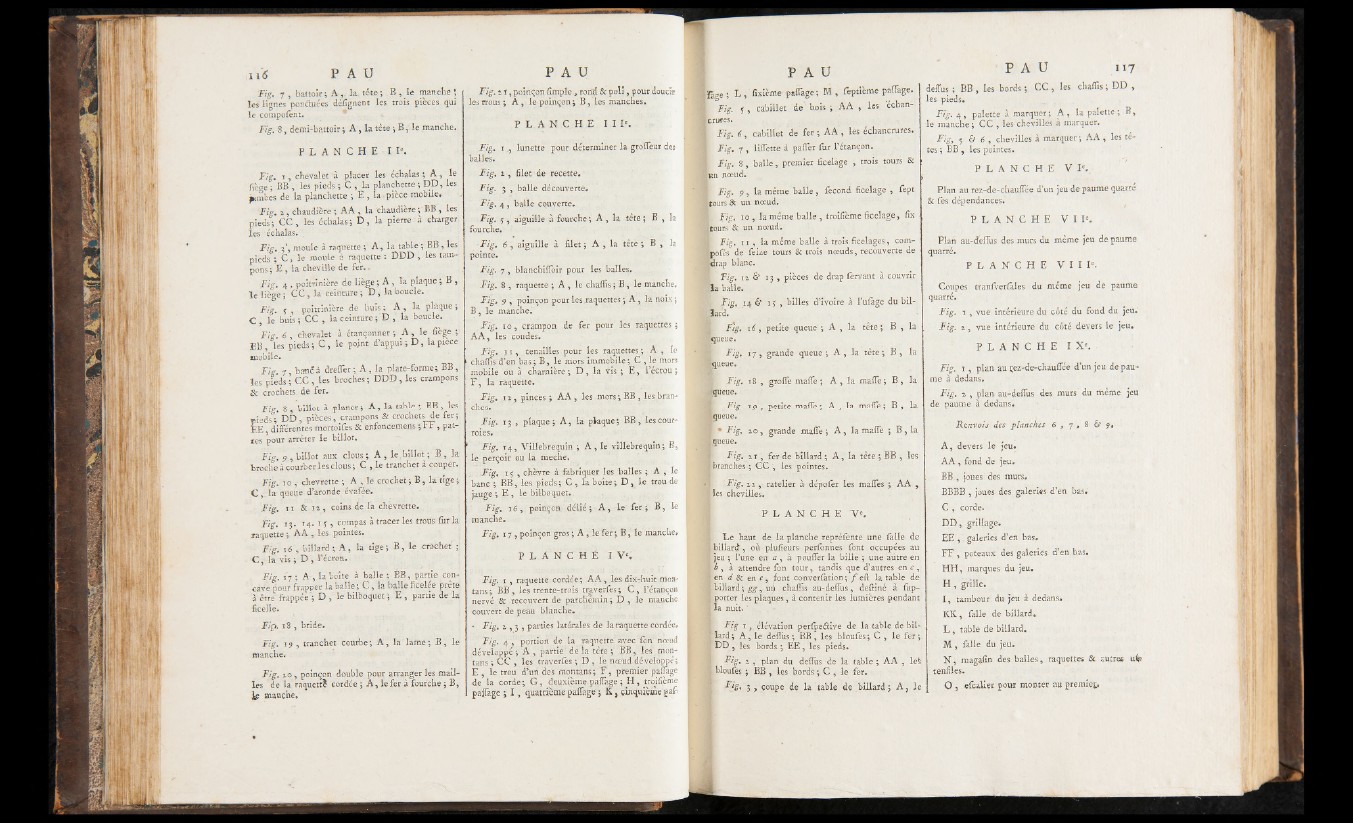 116 P A U
Fig. 7 , battoir ; A , la tête ; B , le manche ;
les lignes ponctuées désignent les trois pièces qui
le composent.
Fig. 8 , demi-battoir ; A , la tête ; B , le manche.
P L A N C H E I Iᵉ.
Fig. 1 , chevalet à placer les échalas ; A , le
siége ; BB , les pieds ; C , la planchette ; DD , les
jumèes de la planchette ; E , la pièce mobile.
Fig. 2 , chaudière ; AA , la chaudière ; BB , les
pieds ; CC , les échalas ; D , la pierre à charger
les échalas.
Fig. 3 , moule à raquette ; A , la table ; BB , les
pieds ; C , le moule à raquette ; DDD , les tam-
pons ; E , la cheville de fer.
Fig. 4 , poitrinière de liège ; A , la plaque ; B ,
le liège ; CC , la ceinture ; D , la boucle.
Fig. 5 , poitrinière de buis ; A , la plaque ;
C , le buis ; CC , la ceinture ; D , la boucle.
Fig. 6 , chevalet à étançonner ; A , le siége ;
BB , les pieds ; C , le point d'appui ; D , la pièce
mobile.
Fig. 7 , banc à dresser ; A , la plate-forme ; BB ,
les pieds ; CC , les broches ; DDD , les crampons
& crochets de fer.
Fig. 8 , billot à planer ; A , la table ; BB , les
pieds ; DD , pièces , crampons & crochets de fer ;
EE , différentes mortoises & enfoncemens ; FF , pat-
tes pour arrêter le billot.
Fig. 9 , billot aux clous ; A , le billot ; B , la
broche à courber les clous ; C , le tranchet à couper.
Fig. 10 , chevrette ; A , le crochet ; B , la tige ;
C , la queue d'aronde évasée.
Fig. 11 & 12 , coins de la chevrette.
Fig. 13. 14. 15 , compas à tracer les trous sur la
raquette ; AA , les pointes.
Fig. 16 , billard ; A , la tige ; B , le crochet ;
C , la vis ; D , l'écrou.
Fig. 17 ; A , la boîte à balle ; BB , partie con-
cave pour frapper la balle ; C , la balle ficelée prête
à être frappée ; D , le bilboquet ; E , partie de la
ficelle.
Fig. 18 , bride.
Fig. 19 , tranchet courbe ; A , la lame ; B , le
manche.
Fig. 20 , poinçon double pour arranger les mail-
les de la raquette cordée ; A , le fer à fourche ; B,
le manche.
P A U
Fig. 21 , poinçon simple , rond & poli , pour doucir
les trous ; A , le poinçon ; B , les manches.
P L A N C H E I I Iᵉ.
Fig. 1 , lunette pour déterminer la grosseur des
balles.
Fig. 2 , filet de recette.
Fig. 3 , balle découverte.
Fig. 4 , balle couverte.
Fig. 5 , aiguille à fourche ; A , la tête ; B , la
fourche.
Fig. 6 , aiguille à filet ; A , la tête ; B , la
pointe.
Fig. 7 , blanchissoir pour les balles.
Fig. 8 , raquette ; A , le chassis ; B , le manche.
Fig. 9 , poinçon pour les raquettes ; A , la noix ;
B , le manche.
Fig. 10 , crampon de fer pour les raquettes ;
AA , les coudes.
Fig. 11 , tenailles pour les raquettes ; A , le
chassis d'en bas ; B , le mors immobile ; C , le mors
mobile ou à charnière ; D , la vis ; E , l'écrou ;
F , la raquette.
Fig. 12 , pinces ; AA , les mors ; BB , les bran-
ches.
Fig. 13 , plaque ; A , la plaque ; BB , les cour-
roies.
Fig. 14 , Villebrequin ; A , le villebrequin ; B ,
le perçoir ou la mèche.
Fig. 15 , chèvre à fabriquer les balles ; A , le
banc ; BB , les pieds ; C , la boîte ; D , le trou de
jauge ; E , le bilboquet.
Fig. 16 , poinçon délié ; A , le fer ; B , le
manche.
Fig. 17 , poinçon gros ; A , le fer ; B , le manche.
P L A N C H E I Vᵉ.
Fig. 1 , raquette cordée ; AA , les dix-huit mon-
tans ; BB , les trente-trois traverses ; C , l'étançon
nervé & recouvert de parchemin ; D , le manche
couvert de peau blanche.
Fig. 2 , 3 , parties latérales de la raquette cordée.
Fig. 4 , portion de la raquette avec son nœud
développé ; A , partie de la tête ; BB , les mon-
tans ; CC , les traverses ; D , le nœud développé ;
E , le trou d'un des montans ; F , premier passage
de la corde ; G , deuxième passage ; H , troisième
passage ; I , quatrième passage ; K , cinquième pas-
P A U
sage ; L , sixième passage ; M , septième passage.
Fig. 5 , cabillet de bois ; AA , les échan-
crures.
Fig. 6 , cabillet de fer ; AA , les échancrures.
Fig. 7 , lissette à passer sur l'étançon.
Fig. 8 , balle , premier ficelage , trois tours &
un nœud.
Fig. 9 , la même balle , second ficelage , sept
tours & un nœud.
Fig. 10 , la même balle , troisième ficelage , six
tours & un nœud.
Fig. 11 , la même balle à trois ficelages , com-
posés de seize tours & trois nœuds , recouverte de
drap blanc.
Fig. 12 & 13 , pièces de drap servant à couvrir
la balle.
Fig. 14 & 15 , billes d'ivoire à l'usage du bil-
lard.
Fig. 16 , petite queue ; A , la tête ; B , la
queue.
Fig. 17 , grande queue ; A , la tête ; B , la
queue.
Fig. 18 , grosse masse ; A , la masse ; B , la
queue.
Fig 19 , petite masse ; A , la masse ; B , la
queue.
Fig. 20 , grande masse ; A , la masse ; B , la
queue.
Fig. 21 , fer de billard ; A , la tête ; BB , les
branches ; CC , les pointes.
Fig. 22 , ratelier à déposer les masses ; AA ,
les chevilles.
P L A N C H E Vᵉ.
Le haut de la planche représente une salle de
billard , où plusieurs personnes sont occupées au
jeu ; l'une en a , à pousser la bille ; une autre en
b , à attendre son tour , tandis que d'autres en c ,
en d & en e , font conversation ; f est la table de
billard ; gg , un chassis au-dessus , destiné à sup-
porter les plaques , à contenir les lumières pendant
la nuit.
Fig 1 , élévation perspective de la table de bil-
lard ; A , le dessus ; BB , les blouses ; C , le fer ;
DD , les bords ; EE , les pieds.
Fig. 2 , plan du dessus de la table ; AA , les
blouses ; BB , les bords ; C , le fer.
Fig. 3 , coupe de la table de billard ; A , le
P A U 117
dessus ; BB , les bords ; CC , les chassis ; DD ,
les pieds.
Fig. 4 , palette à marquer ; A , la palette ; B ,
le manche ; CC , les chevilles à marquer.
Fig. 5 & 6 , chevilles à marquer ; AA , les tê-
tes ; BB , les pointes.
P L A N C H E V Iᵉ.
Plan au rez-de-chaussée d'un jeu de paume quarré
& ses dépendances.
P L A N C H E V I Iᵉ.
Plan au-dessus des murs du même jeu de paume
quarré.
P L A N C H E V I I Iᵉ.
Coupes transversales du même jeu de paume
quarré.
Fig. 1 , vue intérieure du côté du fond du jeu.
Fig. 2 , vue intérieure du côté devers le jeu.
P L A N C H E I Xᵉ.
Fig. 1 , plan au rez-de-chaussée d'un jeu de pau-
me à dedans.
Fig. 2 , plan au-dessus des murs du même jeu
de paume à dedans.
Renvois des planches 6 , 7 , 8 & 9.
A, devers le jeu.
AA , fond de jeu.
BB , joues des murs.
BBBB , joues des galeries d'en bas.
C , corde.
DD , grillage.
EE , galeries d'en bas.
FF , poteaux des galeries d'en bas.
HH , marques du jeu.
H , grille.
I , tambour du jeu à dedans.
KK , salle de billard.
L , table de billard.
M , salle du jeu.
N , magasin des balles , raquettes & autres us-
tensiles.
O , escalier pour monter au premier.